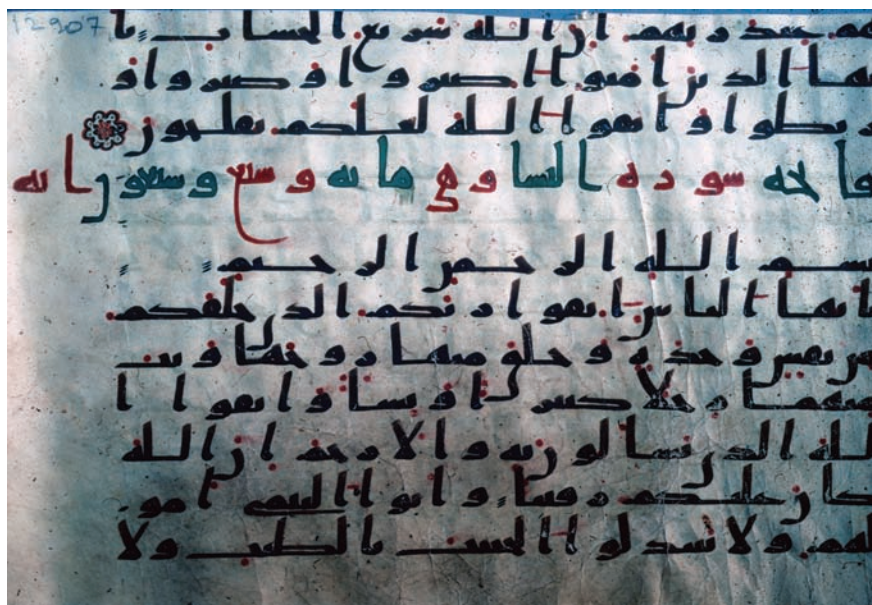 12907
هم عند ربهم ان الله سريع الحساب يا
يها الذين امنوا اصبروا وصبروا و
ر بطوا واتقوا الله لعلكم تفلحون
فاتحه سوره النسا وهي مايه وسبع وسبعون ايه
بسم الله الرحمن الرحيم
يايها الناس اتقوا ربكم الذي خلقكم
من نفس وحدة وخلق منها زوجها وبث
منهما رجلا كثيرا ونسا واتقوا ا
لله الذي تسالون به والارحم ان الله
كان عليكم رقيبا واتوا اليتمى امو
لهم ولا تتبدلوا الخبيث بالطيب ولا